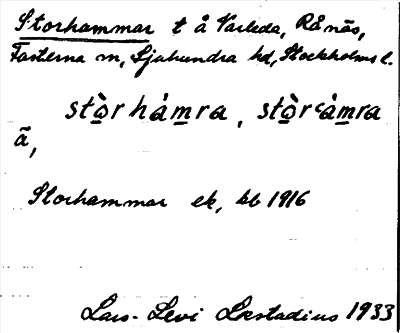 Storhammar t å Varleda, Rånäs,
Fasterna sn, Sjuhundra hd, Stockholms l.
stòrhámra, stòrcámra
ã,
Storhammar ek, kb 1916
Lars-Levi Læstadius 1933